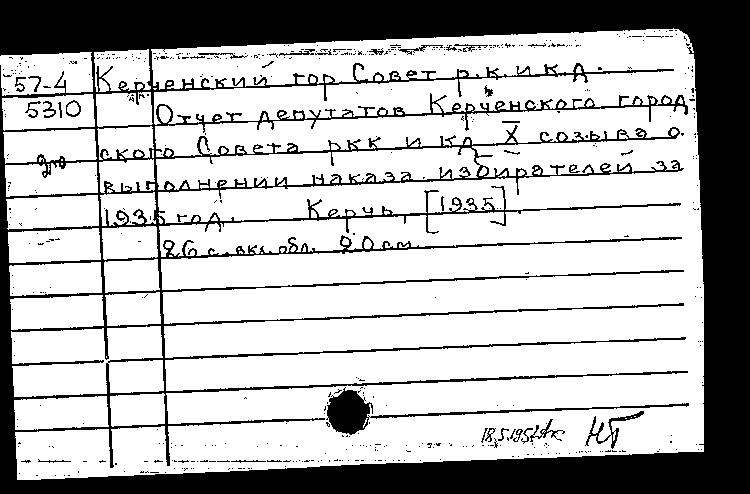 57-4 Керченский гор Совет р.к. и к.д.
5310 Отчет депутатов Керченского город-
ского Совета ркк и кд X созыва о
выполнении наказа избирателей за
1935 год. Керчь, [1935].
26 с. вкл. обл. 20 см
18.5.195 НБ